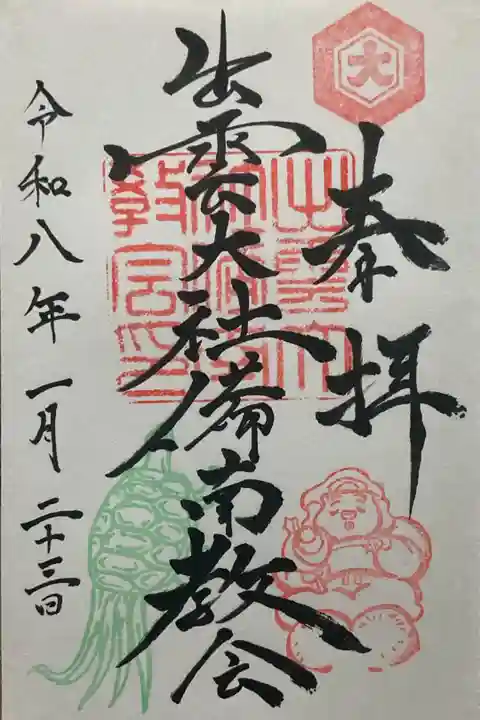 大
奉拝
出雲大社備南教会
令和八年一月二十三日